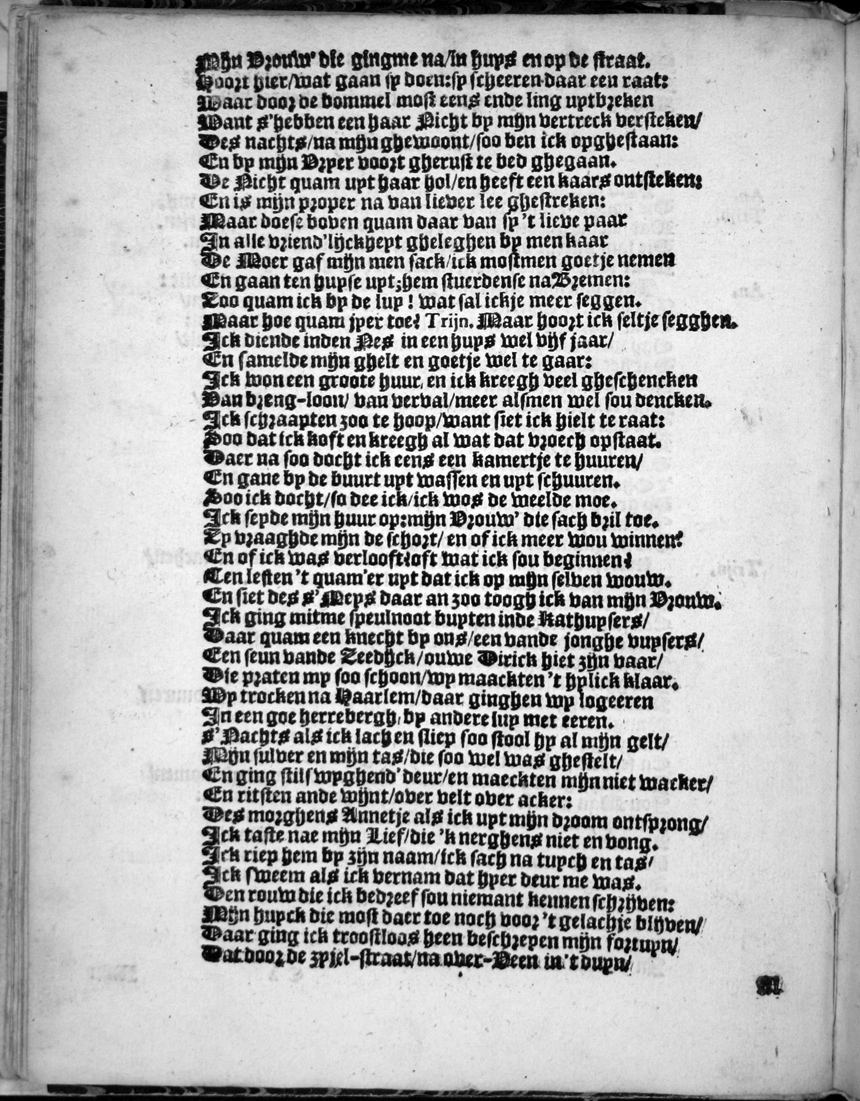 Mijn Vrouw' die gingme na/in huys en op de straat.
Hoort hier/wat gaan sy doen:sy scheeren daar een raat:
Maar door de bommel most eens ende ling uytbreken
Want s'hebben een haar Nicht by mijn vertreck versteken/
Des nachts/na mijn ghewoont/soo ben ick opghestaan:
En by mijn Vryer voort gherust te bed ghegaan.
De Nicht quam uyt haar hol/en heeft een kaars ontsteken:
En is mijn proper na van liever lee ghestreken:
Maar doese boven quam daar van sy 't lieve paar
In alle vriend'lijckheyt gheleghen by men kaar
De Moer gaf mijn men sack/ick mostmen goetje nemen
En gaan ten huyse uyt;hem stuerdense na Bremen:
Zoo quam ick by de luy! wat sal ickje meer seggen.
Maar hoe quam jyer toe? Trijn. Maar hoort ick seltje segghen.
Ick diende inden Nes in een huys wel vijf jaar/
En samelde mijn ghelt en goetje wel te gaar:
Ick won een groote huur, en ick kreegh veel gheschencken
Van breng-loon/ van verval/meer alsmen wel sou dencken.
Ick schraapten zoo te hoop/want siet ick hielt te raat:
Soo dat ick koft en kreegh al wat dat vroech opstaat.
Daer na soo docht ick eens een kamertje te huuren/
En gane by de buurt uyt wassen en uyt schuuren.
Soo ick docht/so dee ick/ick wos de weelde moe.
Ick seyde mijn huur op:mijn Vrouw' die sach bril toe.
Zy vraaghde mijn de schort/ en of ick meer wou winnen?
En of ick was verlooft?oft wat ick sou beginnen?
Ten lesten 't quam'er uyt dat ick op mijn selven wouw.
En siet des s'Meys daar an zoo toogh ick van mijn Vrouw.
Ick ging mitme speulnoot buyten inde Kathuysers/
Daar quam een knecht by ons/een vande jonghe vuysers/
Een seun vande Zeedijck/ouwe Dirick hiet zijn vaar/
Die praten my soo schoon/wy maackten 't hylick klaar.
Wy trocken na Haarlem/daar ginghen wy logeeren
In een goe herrebergh, by andere luy met eeren.
s'Nachts als ick lach en sliep soo stool hy al mijn gelt/
Mijn sulver en mijn tas/die soo wel was ghestelt/
En ging stilswyghend' deur/en maeckten mijn niet wacker/
En ritsten ande wijnt/over velt over acker:
Des morghens Annetje als ick uyt mijn droom ontsprong/
Ick taste nae mijn Lief/die 'k nerghens niet en vong.
Ick riep hem by zijn naam/ick sach na tuych en tas/
Ick sweem als ick vernam dat hyer deur me was.
Den rouw die ick bedreef sou niemant kennen schrijven:
Mijn huyck die most daer toe noch voor 't gelachje blijven/
Daar ging ick troostloos heen beschreyen mijn fortuyn/
Dat door de zyjel-straat/na over-Veen in't duyn/